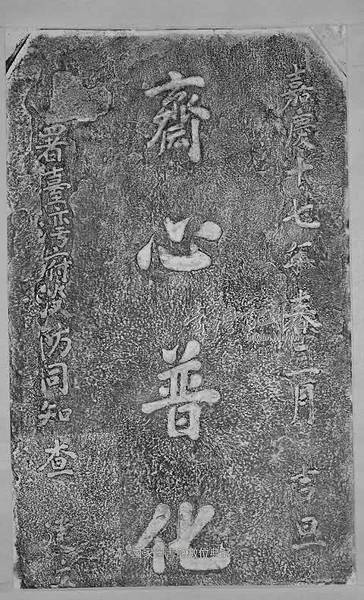 嘉慶十七年春三月 吉旦
齋心普化
署臺灣府淡防同知查 建立